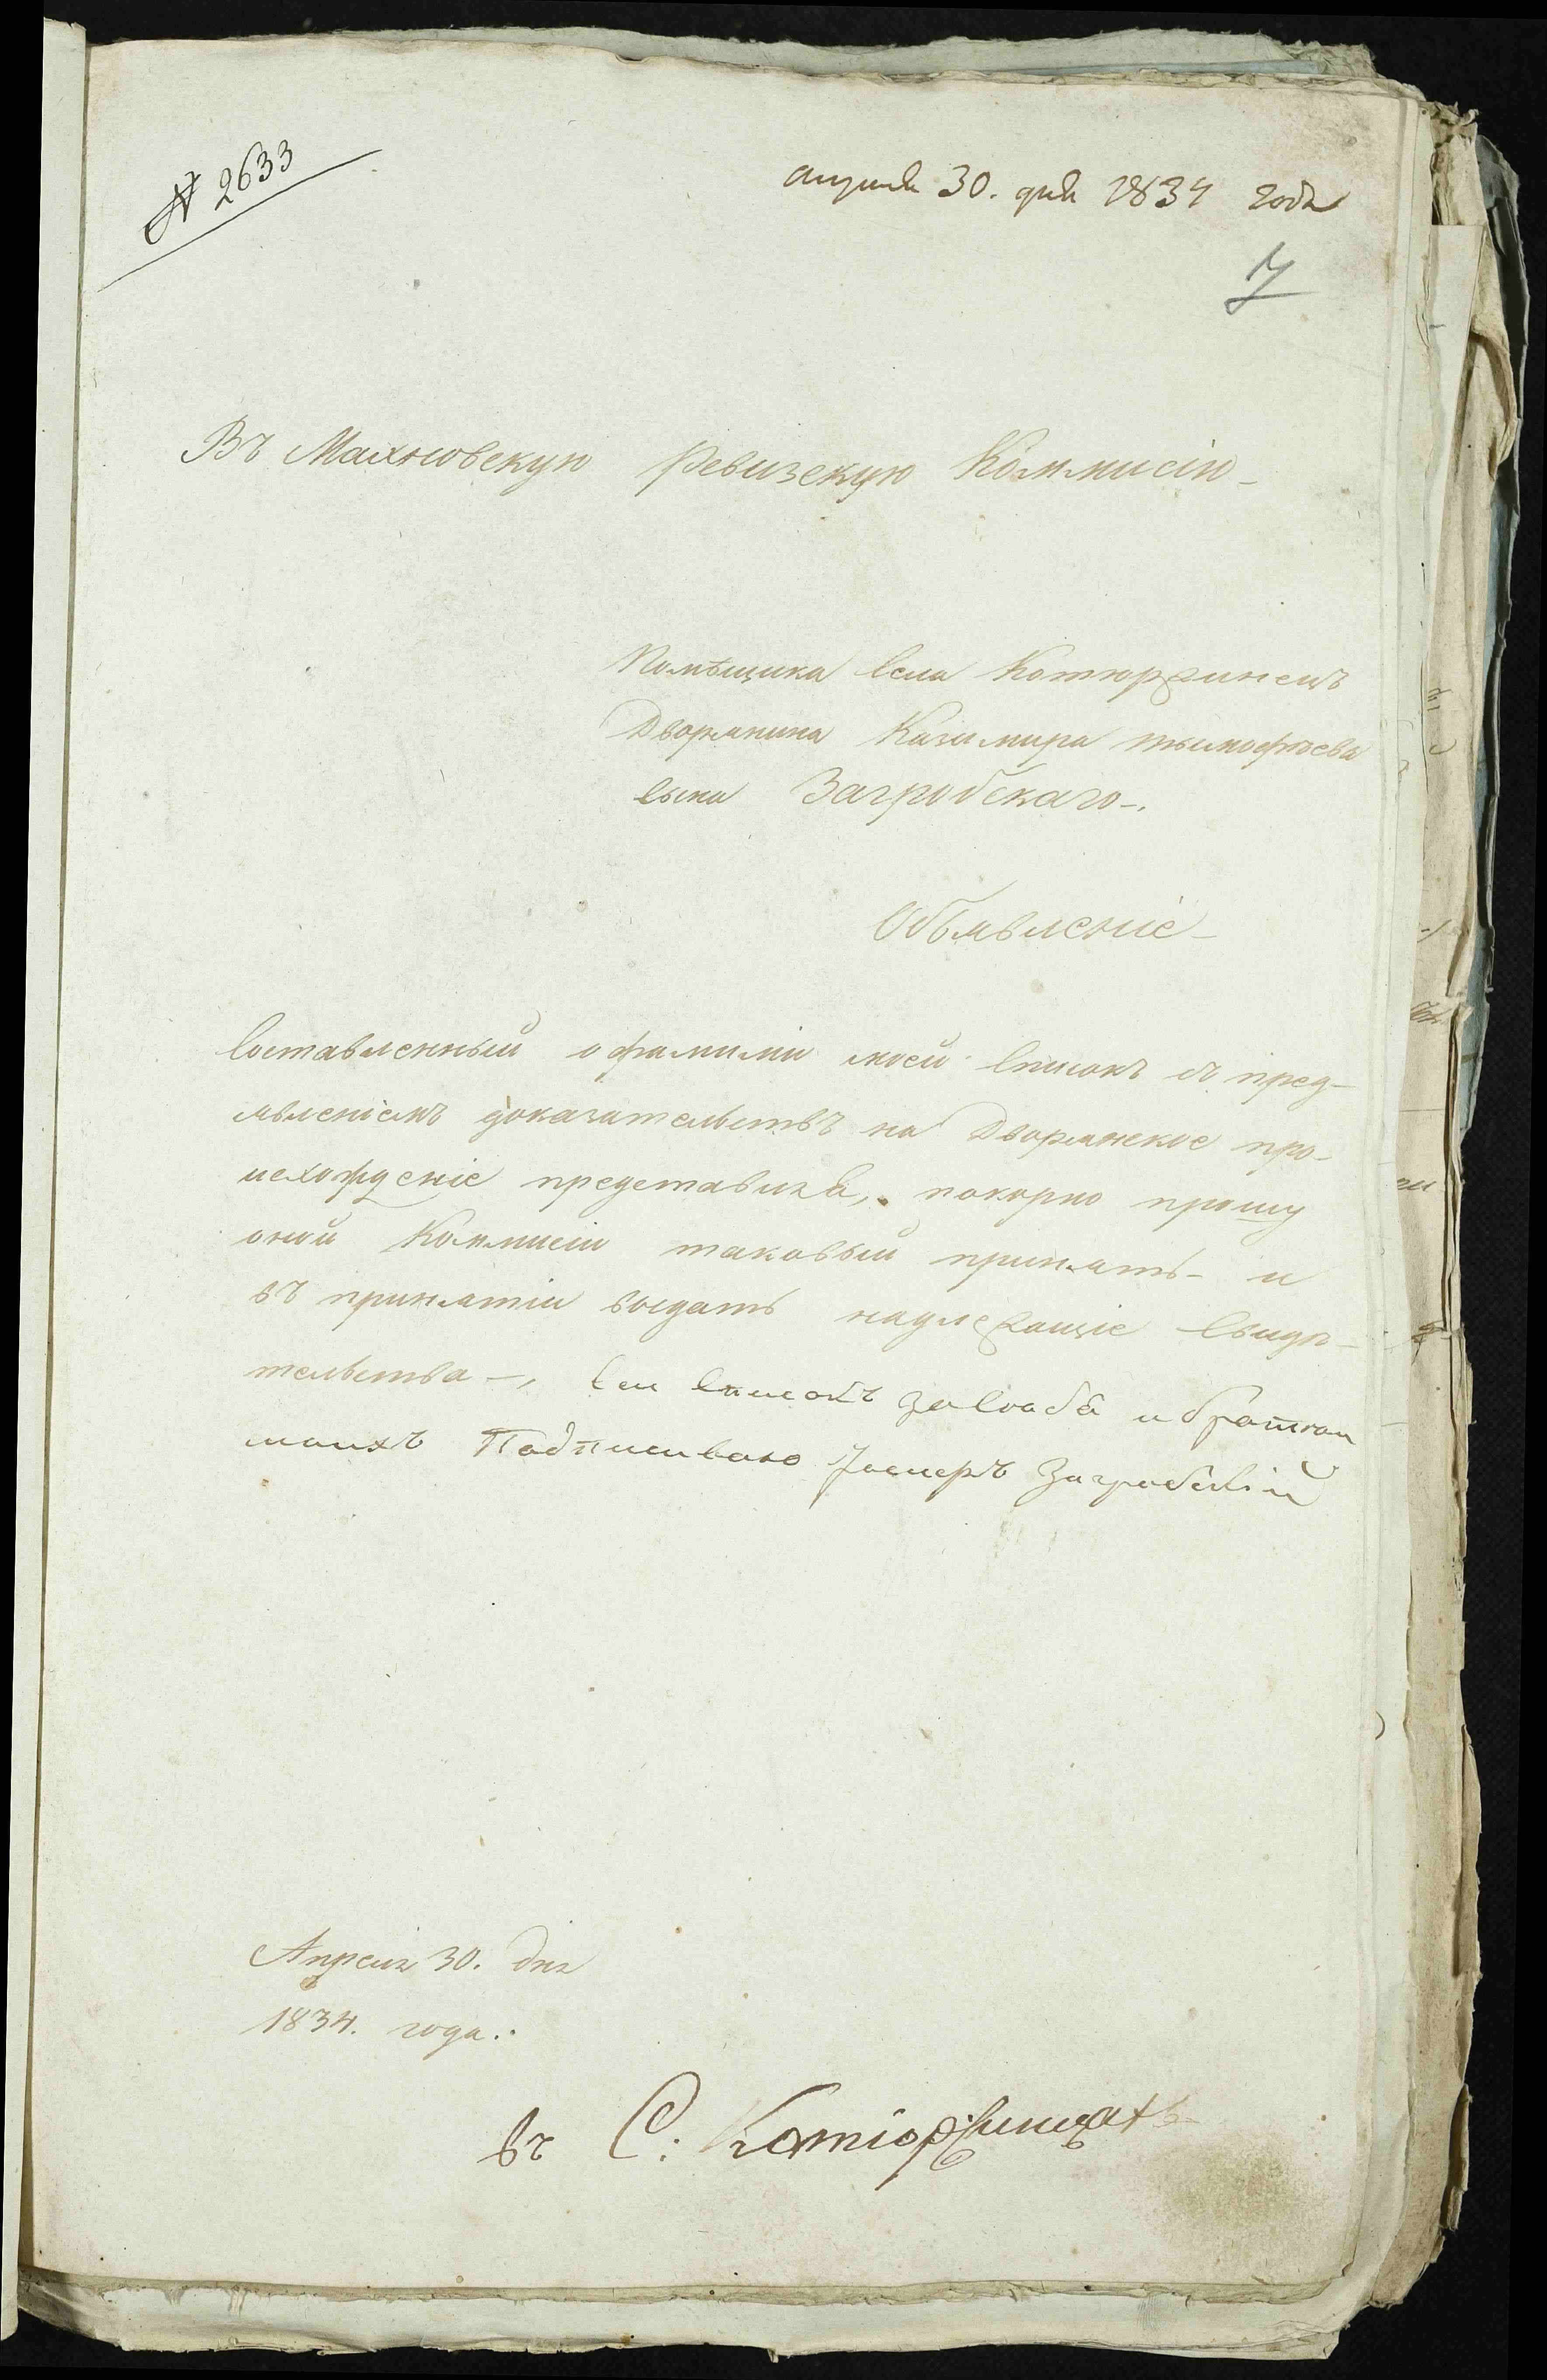 № 2633
апреля 30. дня 1834 года
7
Въ Махновскую Ревизскую Коммисію
Помѣщика села Котюржинецъ
Дворянина Казимира тымофѣева
сына Загробскаго
Объявленіе
Составленный о фамиліи моей Списокъ съ пред-
явленіемъ доказательствъ на Дворянское про-
исхожденіе представляя, покорно прошу
оной Коммисіи таковый принять и
въ принятіи выдать надлежащіе Свидѣ-
тельства, Сей списокъ за Себя и братьи
моихъ Подписиваю Загробскій
Апреля 30. дня
1834. года.
въ С: Котюржинцахъ